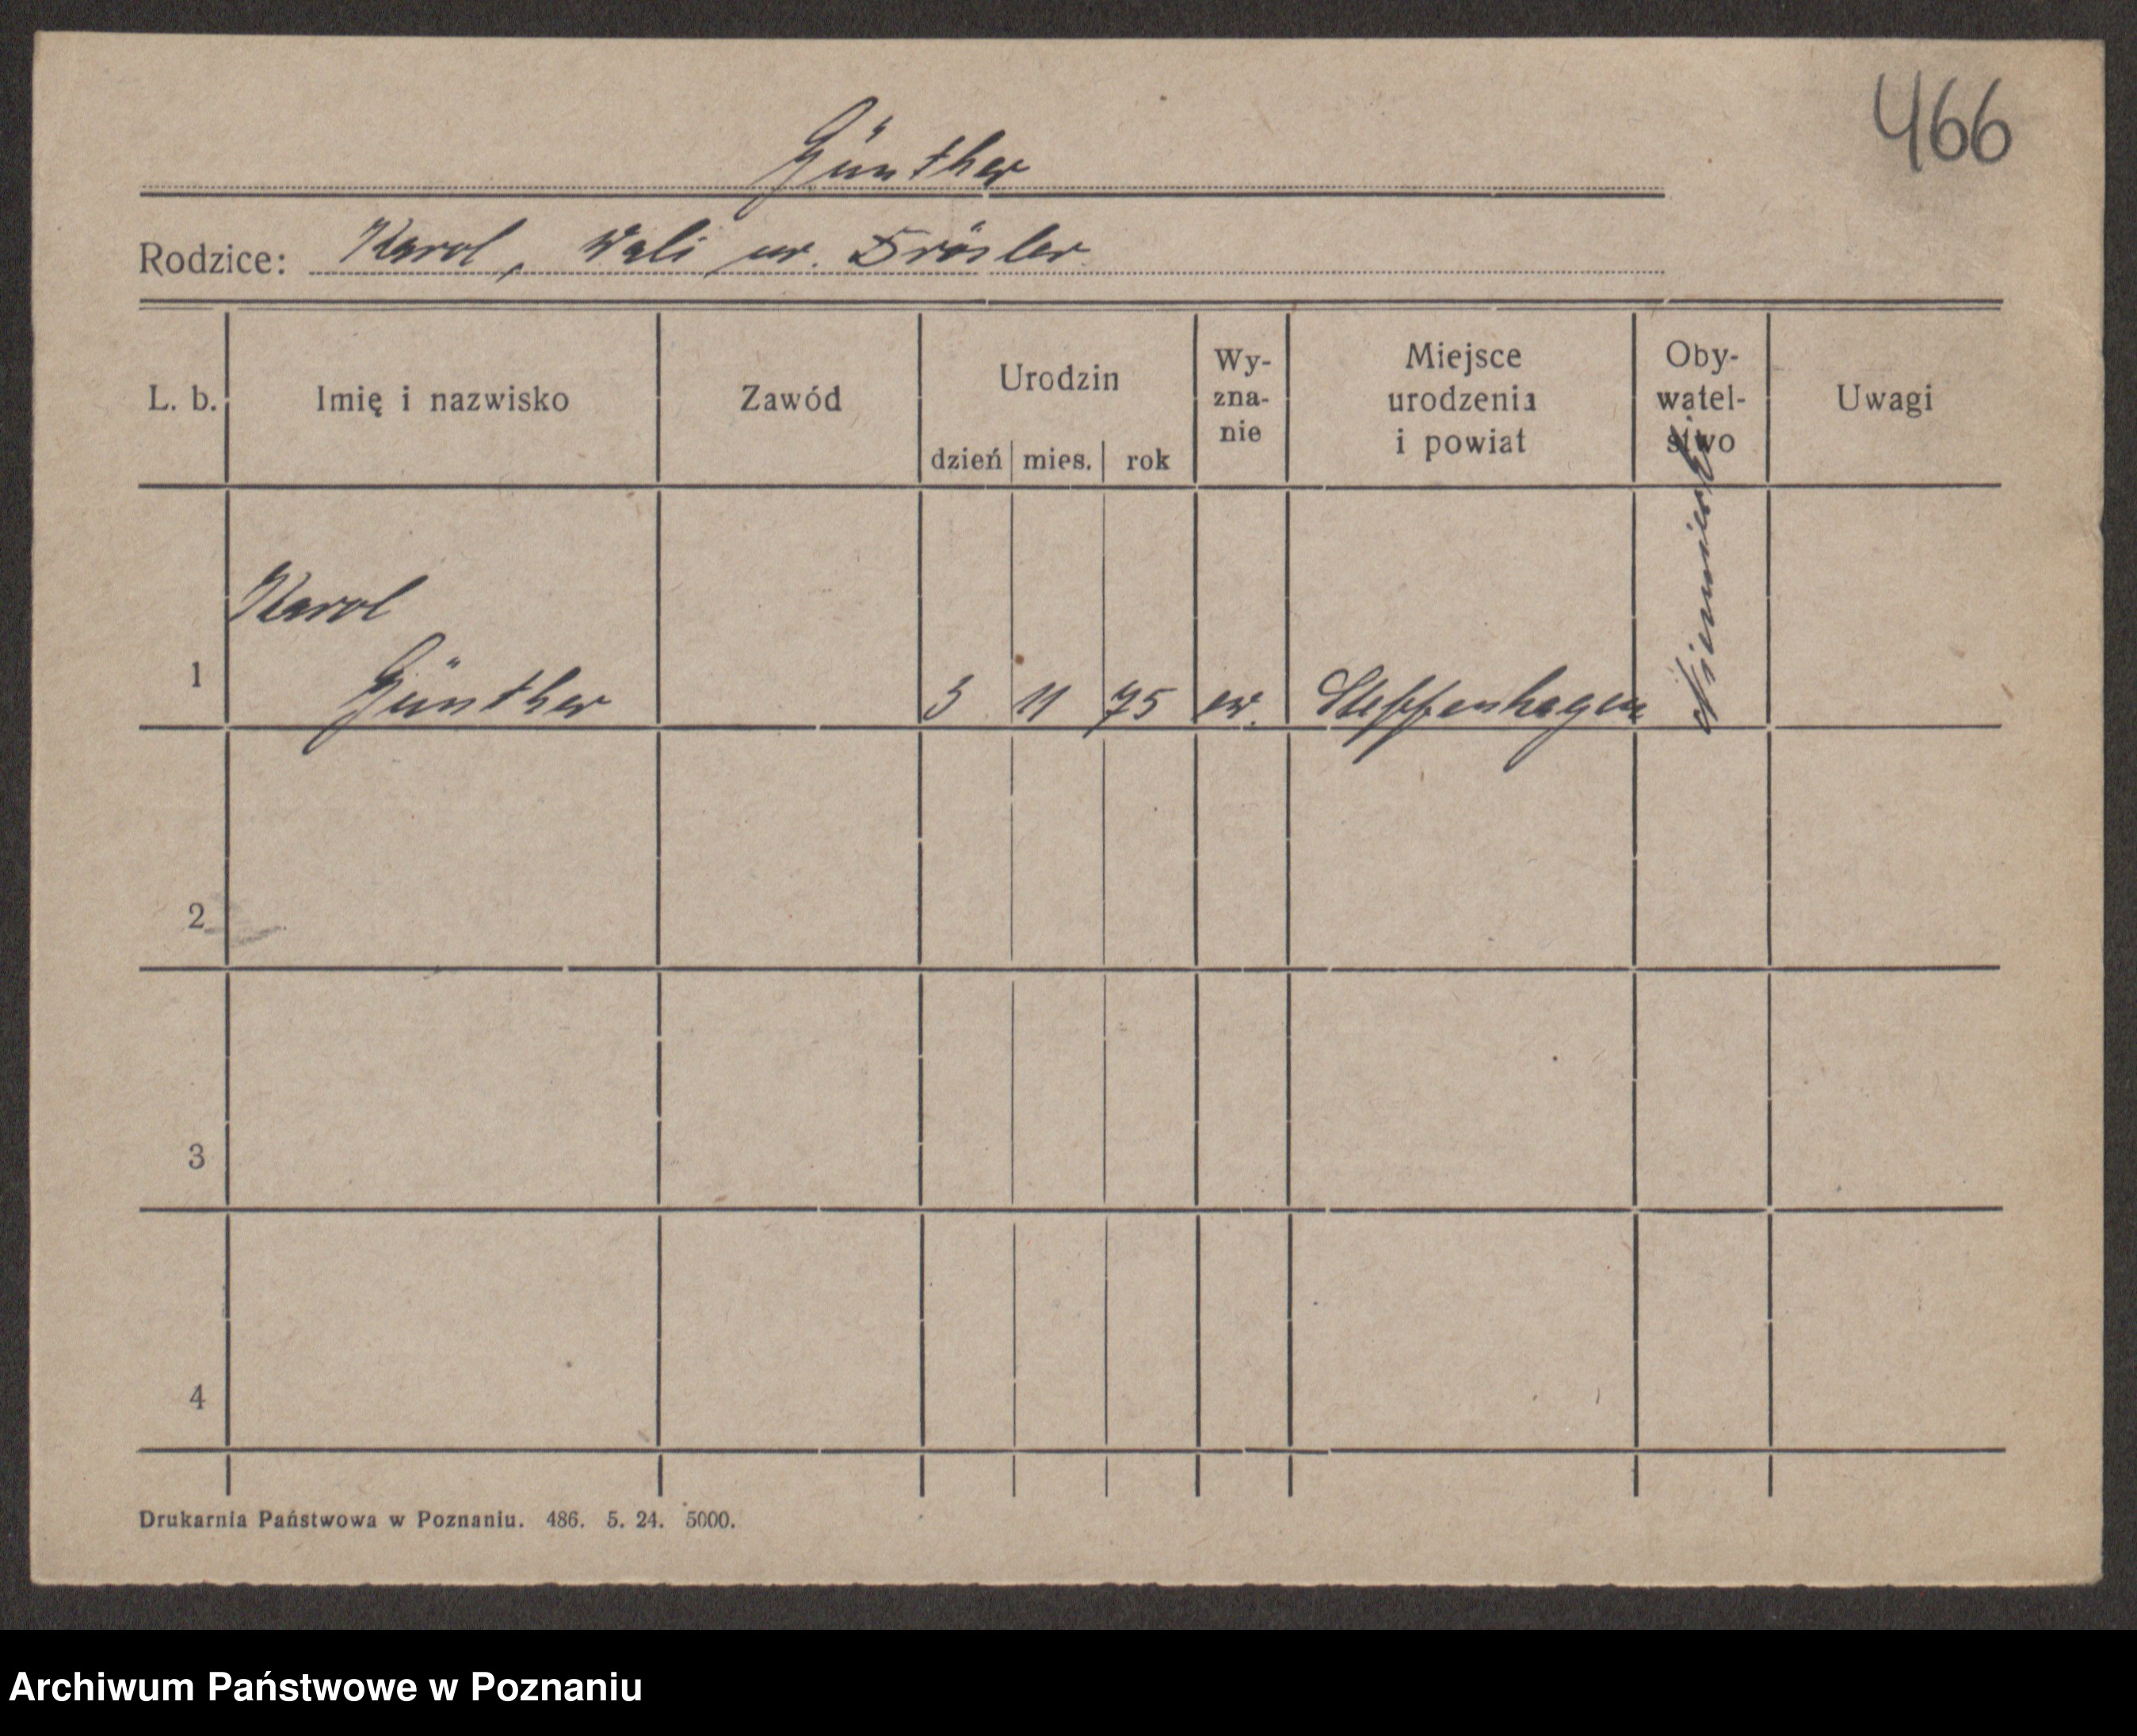 466
Günther
Rodzice: Karol, Wali ur. Drösler
L. b.
Imię i nazwisko
Zawód
Urodzin
dzień mies. rok
Wy-
zna-
nie
Miejsce
urodzenia
i powiat
Oby-
watel-
stwo
Uwagi
1
Karol
Günther
3 11 75 ew. Steffenhagen
2
3
4
Drukarnia Państwowa w Poznaniu. 486. 5. 24. 5000.
Archiwum Państwowe w Poznaniu